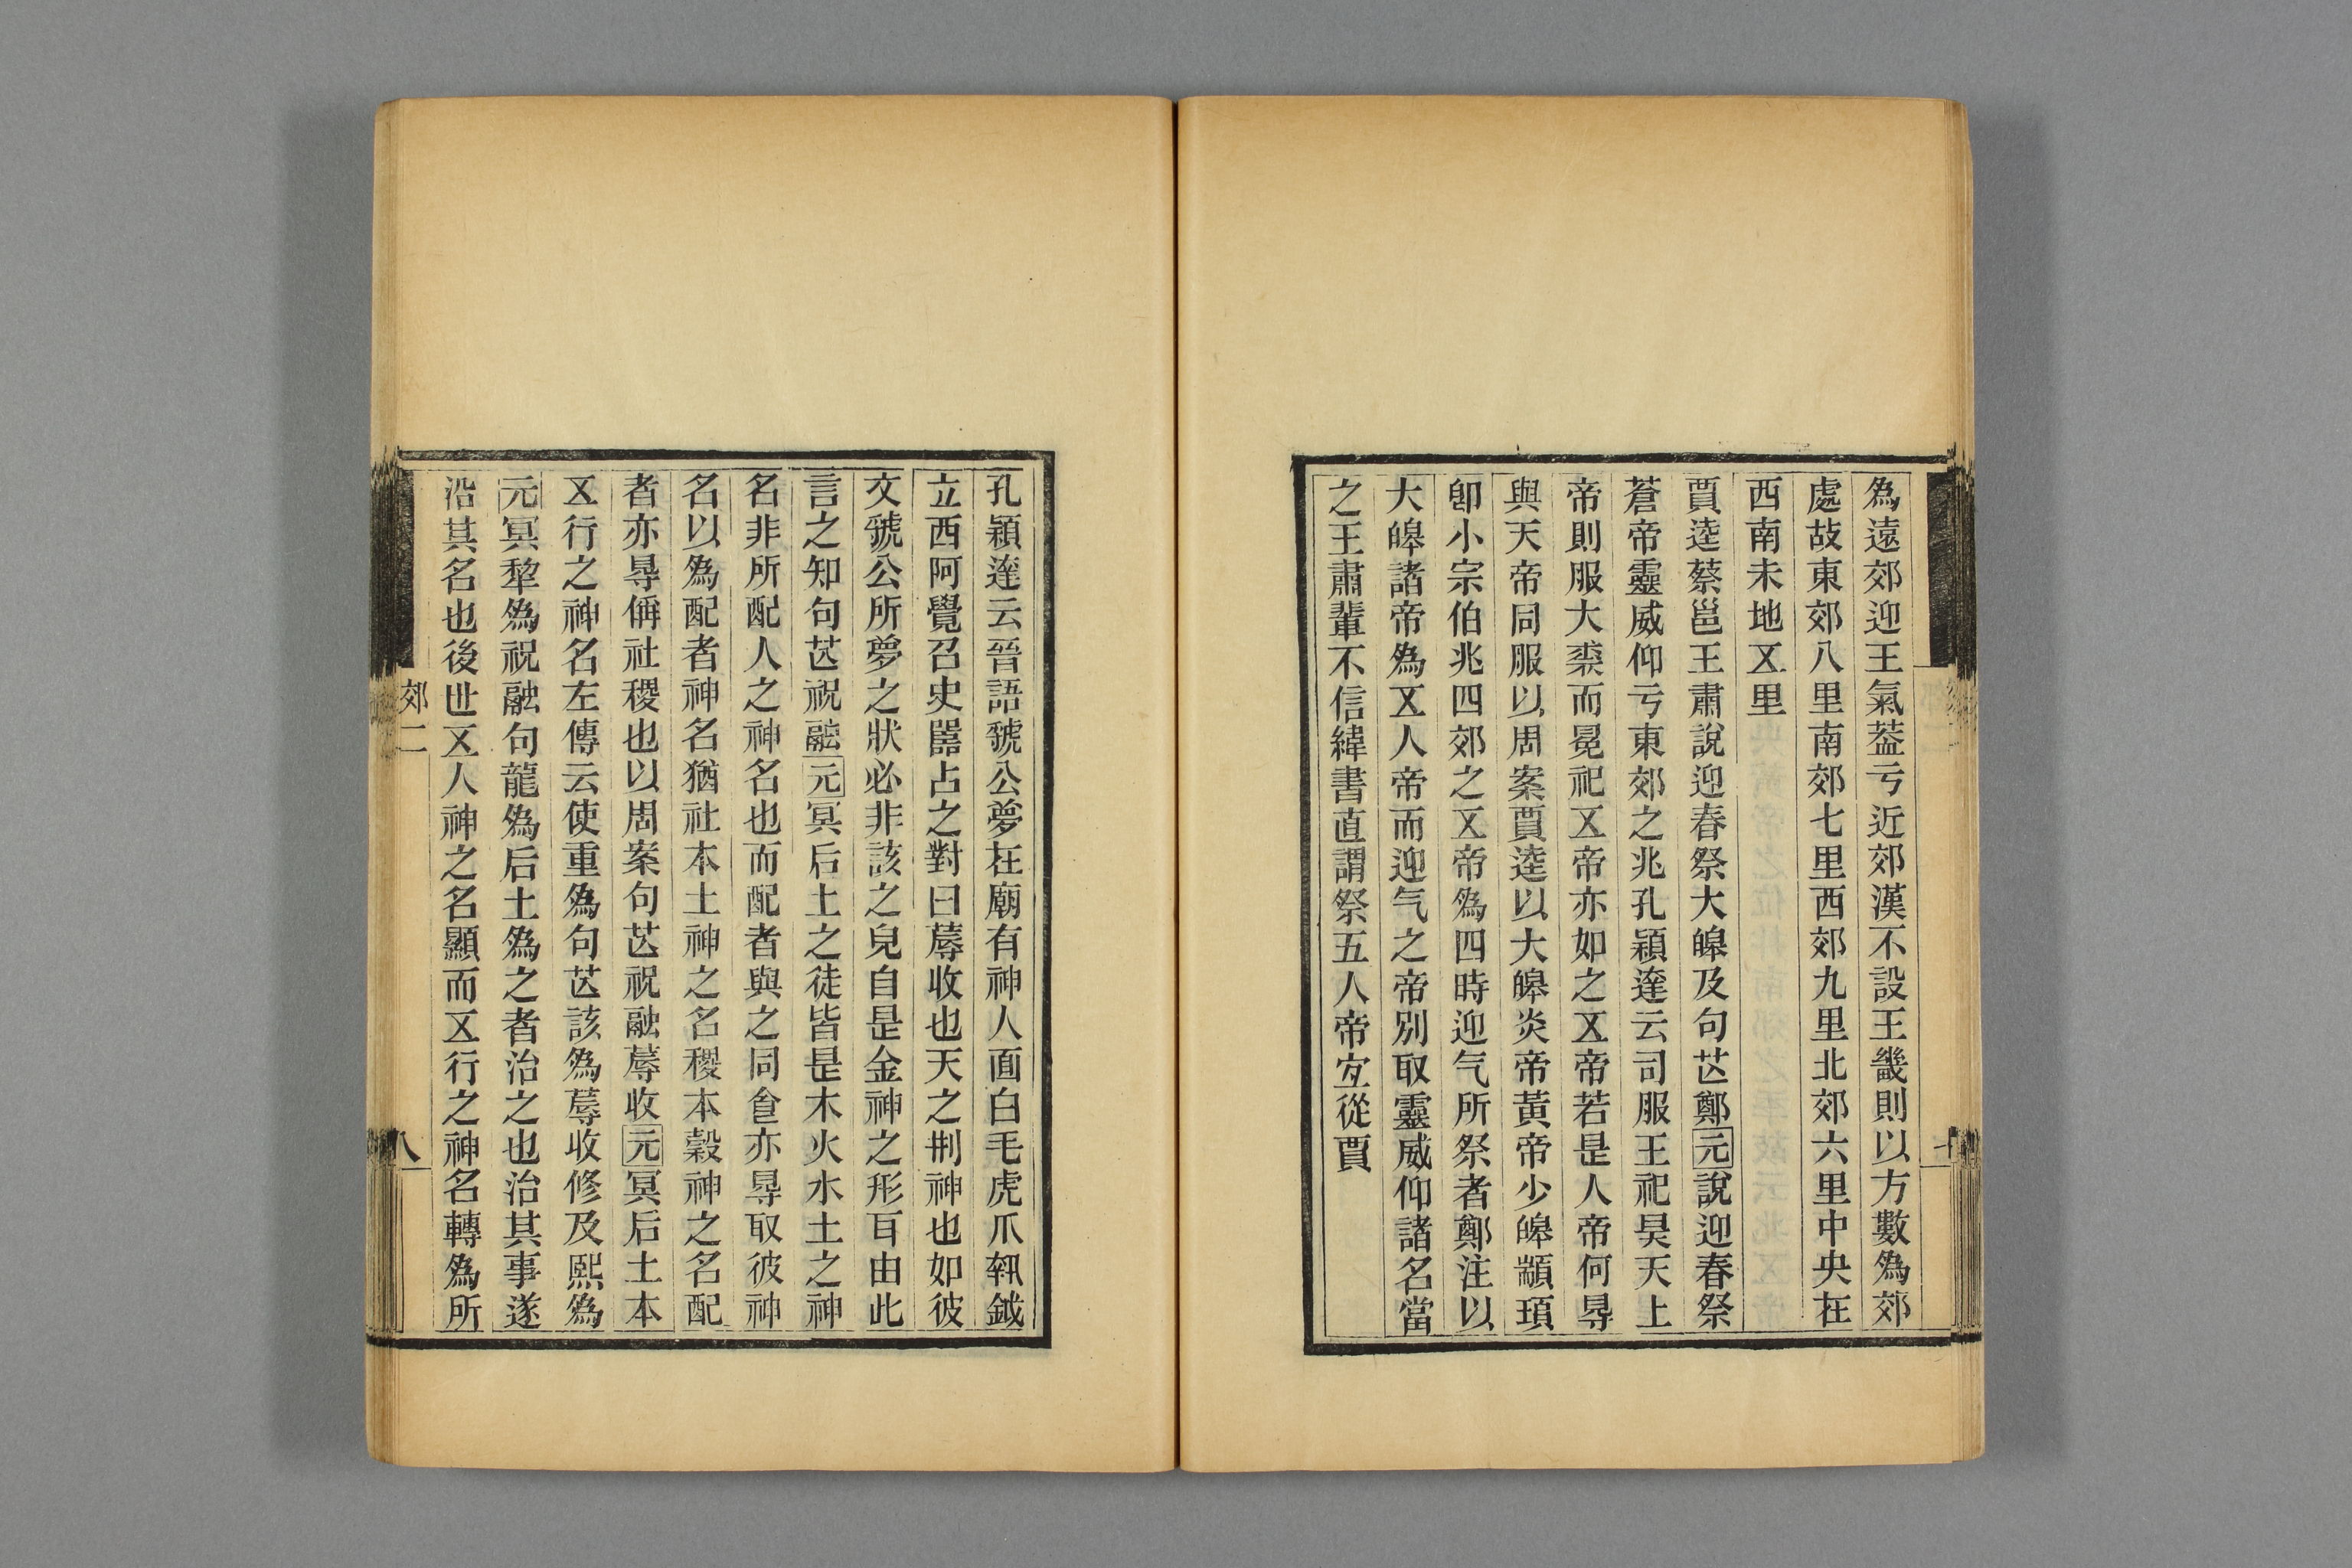 為遠郊迎王氣葢亏近郊漢不設王畿則以方數為郊
處故東郊八里南郊七里西郊九里北郊六里中央在
西南未地㐅里
賈逵蔡邕王肅說迎春祭大皞及句芒鄭元說迎春祭
蒼帝靈威仰亏東郊之兆孔穎達云司服王祀昊天上
帝則服大裘而冕祀㐅帝亦如之㐅帝若是人帝何㝵
與天帝同服以周案賈逵以大皞炎帝黃帝少皞顓頊
卽小宗伯兆四郊之㐅帝為四時迎气所祭者鄭注以
大皞諸帝為㐅人帝而迎气之帝別取靈威仰諸名當
之王肅輩不信緯書直謂祭五人帝宐從賈
七
孔穎達云晉語虢公夢在廟有神人面白毛虎爪執鉞
立西阿覺召史嚚占之對曰蓐收也天之刑神也如彼
文虢公所夢之狀必非該之皃自是金神之形耳由此
言之知句芒祝融元冥后土之徒皆是木火水土之神
名非所配人之神名也而配者與之同食亦㝵取彼神
名以為配者神名猶社本土神之名稷本穀神之名配
者亦㝵偁社稷也以周案句芒祝融蓐收元冥后土本
㐅行之神名左傳云使重為句芒該為蓐收修及熙為
元冥犂為祝融句龍為后土為之者治之也治其事遂
沿其名也後世㐅人神之名顯而㐅行之神名轉為所
郊二
八